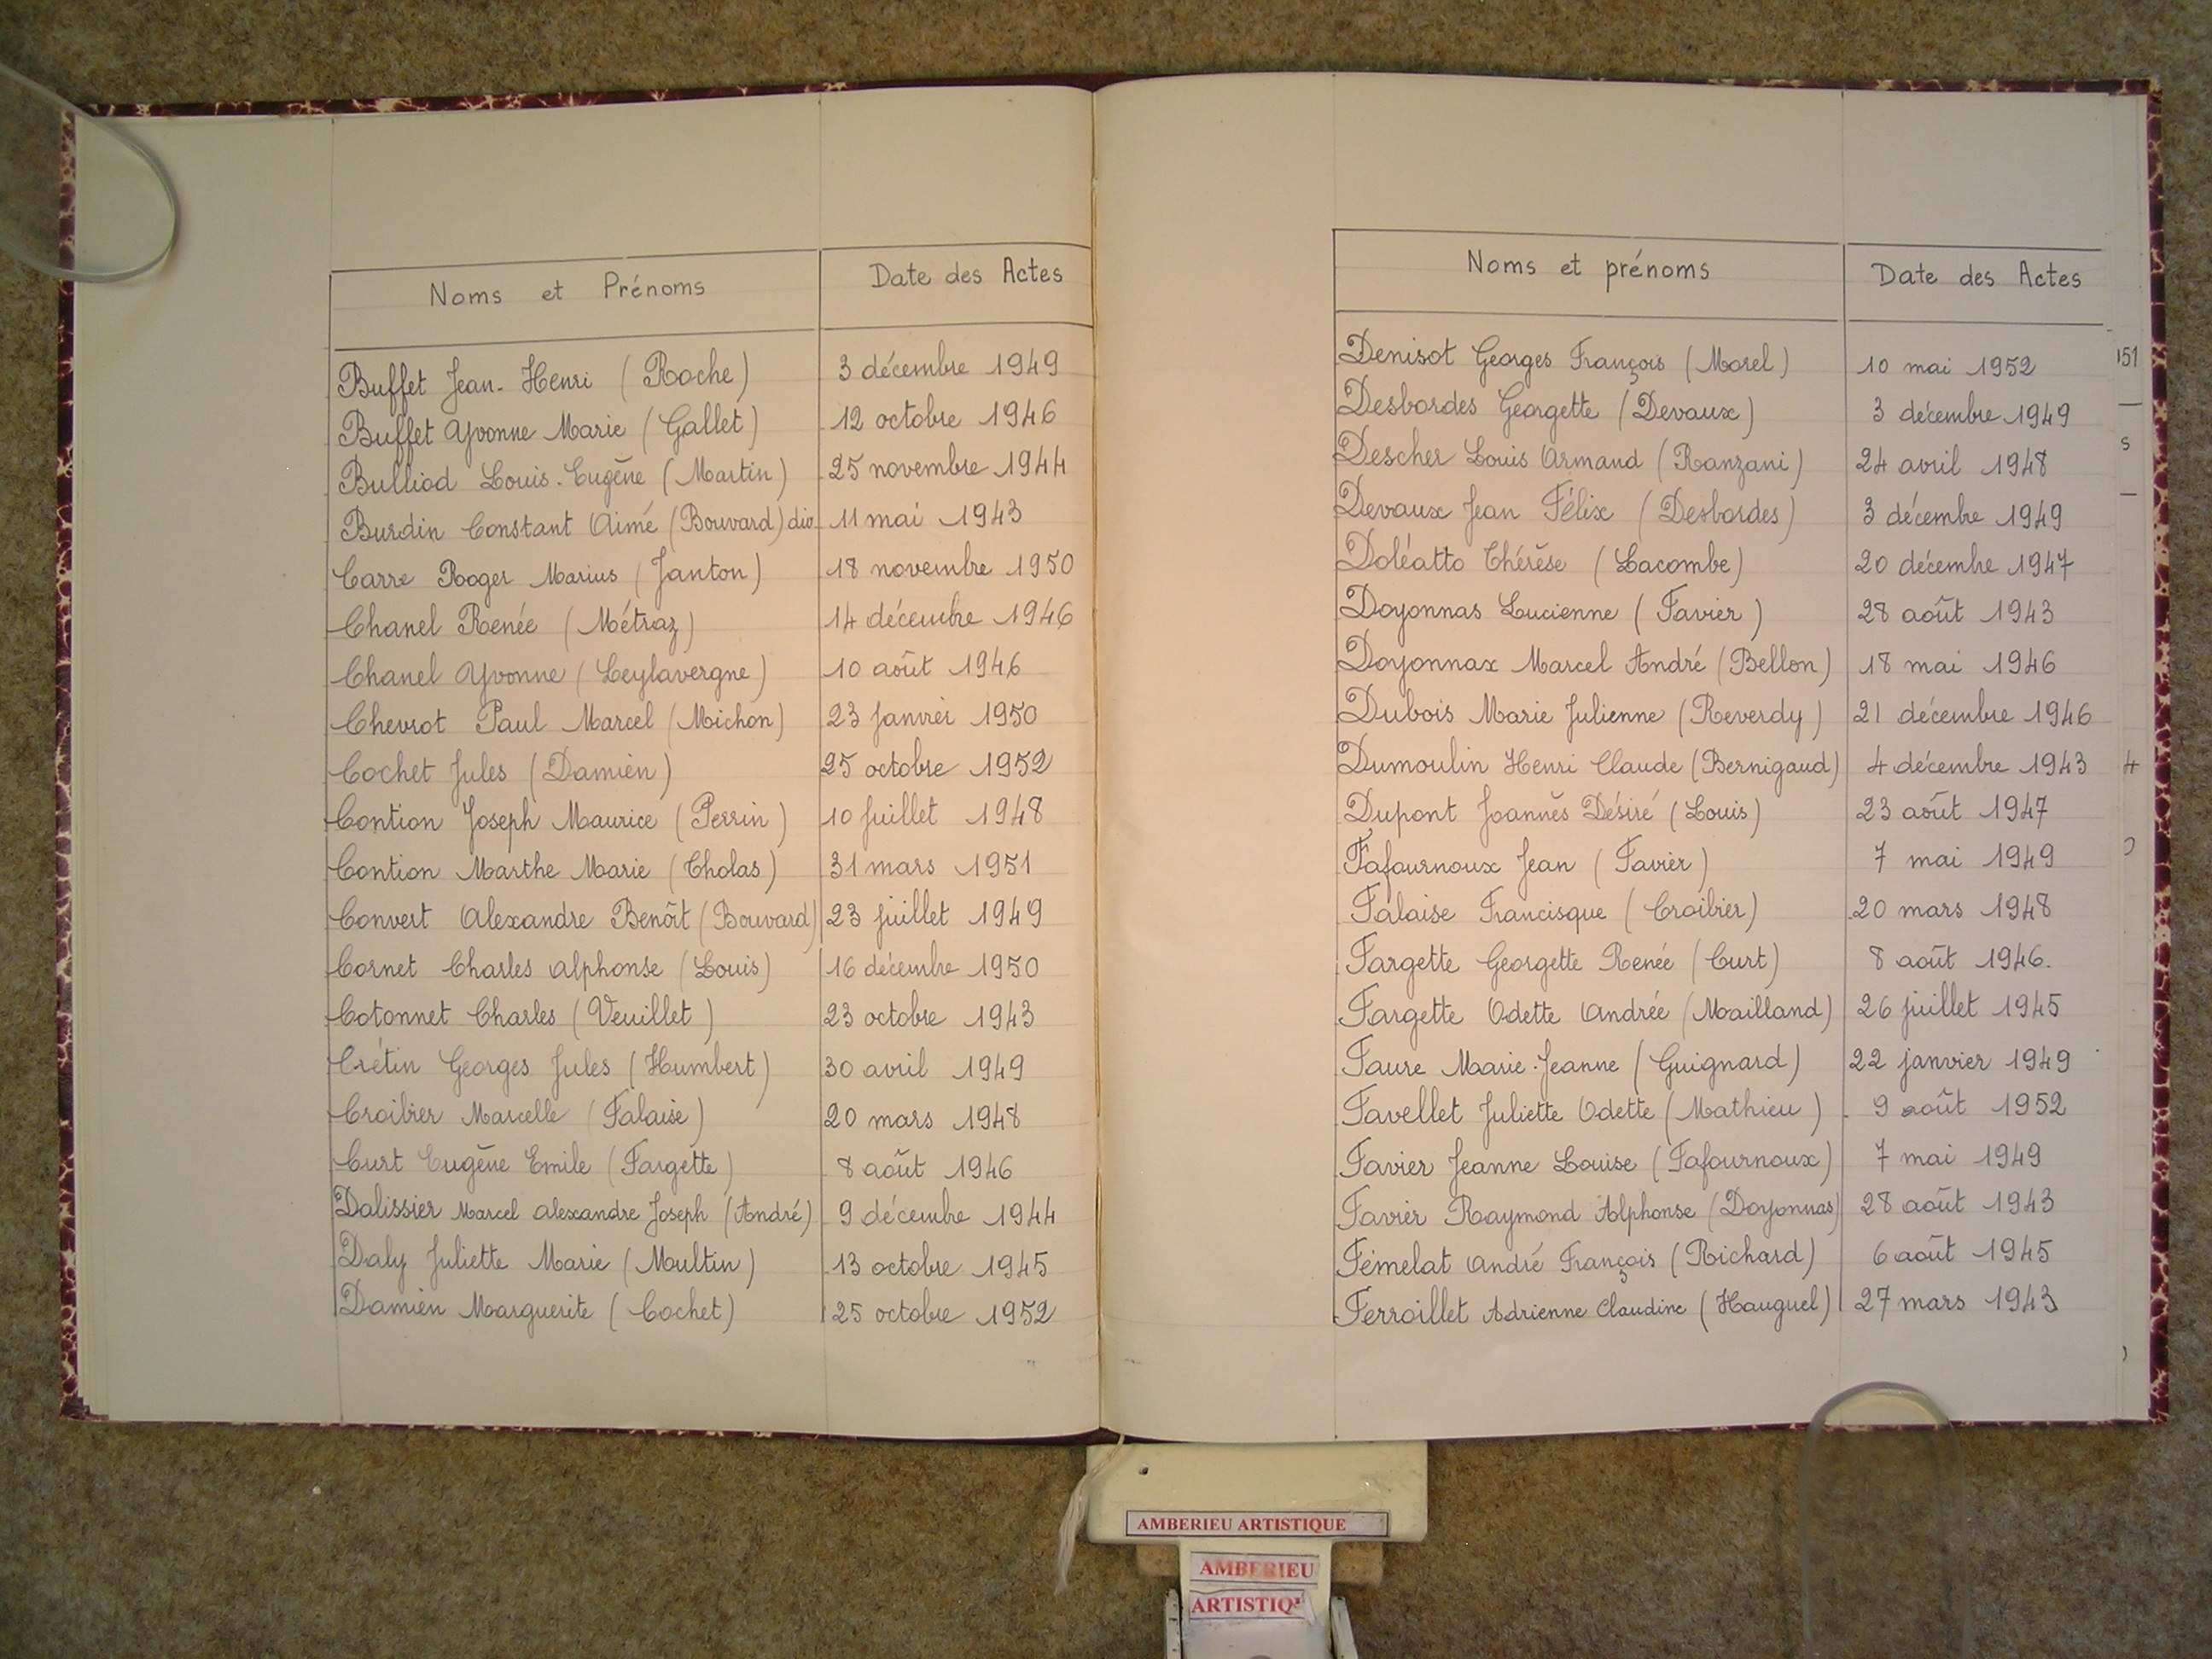 Noms et Prénoms Date des Actes
Buffet Jean-Henri (Roche) 3 décembre 1949
Buffet Yvonne Marie (Gallet) 12 octobre 1946
Bulliod Louis-Eugène (Martin) 25 novembre 1944
Burdin Constant Aimé (Bouvard) div 11 mai 1943
Carre Roger Marius (Janton) 18 novembre 1950
Chanel Renée (Métraz) 14 décembre 1946
Chanel Yvonne (Leylavergne) 10 août 1946
Chevrot Paul Marcel (Michon) 23 janvier 1950
Cochet Jules (Damien) 25 octobre 1952
Contion Joseph Maurice (Perrin) 10 juillet 1948
Contion Marthe Marie (Cholas) 31 mars 1951
Convert Alexandre Benoît (Bouvard) 23 juillet 1949
Cornet Charles Alphonse (Louis) 16 décembre 1950
Cotonnet Charles (Veuillet) 23 octobre 1943
Crétin Georges Jules (Humbert) 30 avril 1949
Croibier Marcelle (Falaise) 20 mars 1948
Curt Eugène Emile (Fargette) 8 août 1946
Dalissier Marcel Alexandre Joseph (André) 9 décembre 1944
Daly Juliette Marie (Moultin) 13 octobre 1945
Damien Marguerite (Cochet) 25 octobre 1952
Noms et prénoms Date des Actes
Denisot Georges François (Morel) 10 mai 1952
Desbordes Georgette (Devaux) 3 décembre 1949
Descher Louis Armand (Ranzani) 24 avril 1948
Devaux Jean Félix (Desbordes) 3 décembre 1949
Doléatto Thérèse (Lacombe) 20 décembre 1947
Doyonnas Lucienne (Favier) 28 août 1943
Doyonnax Marcel André (Bellon) 18 mai 1946
Dubois Marie Julienne (Reverdy) 21 décembre 1946
Dumoulin Henri Claude (Bernigaud) 4 décembre 1943
Dupont Joannès Désiré (Louis) 23 août 1947
Fafournoux Jean (Favier) 7 mai 1949
Falaise Francisque (Croibier) 20 mars 1948
Fargette Georgette Renée (Curt) 8 août 1946.
Fargette Odette Andrée (Mailland) 26 juillet 1945
Faure Marie-Jeanne (Guignard) 22 janvier 1949
Favellet Juliette Odette (Mathieu) 9 août 1952
Favier Jeanne Louise (Fafournoux) 7 mai 1949
Favier Raymond Alphonse (Doyonnas) 28 août 1943
Fémelat André François (Richard) 6 août 1945
Ferroillet Adrienne Claudine (Hauguel) 27 mars 1943
AMBERIEU ARTISTIQUE
AMBERIEU
ARTISTIQ